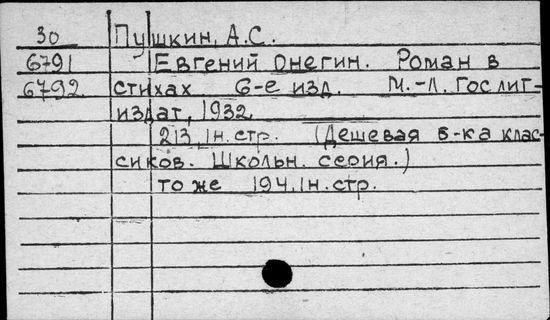 30 Пушкин, А.С.
6791 Евгений Онегин. Роман в
6792. стихах 6-е изд. М.-Л. Гослит-
издат, 1932
213, 1н.стр. (Дешевая б-ка клас-
сиков. Школьн. серия.)
то же 194. 1н.стр.